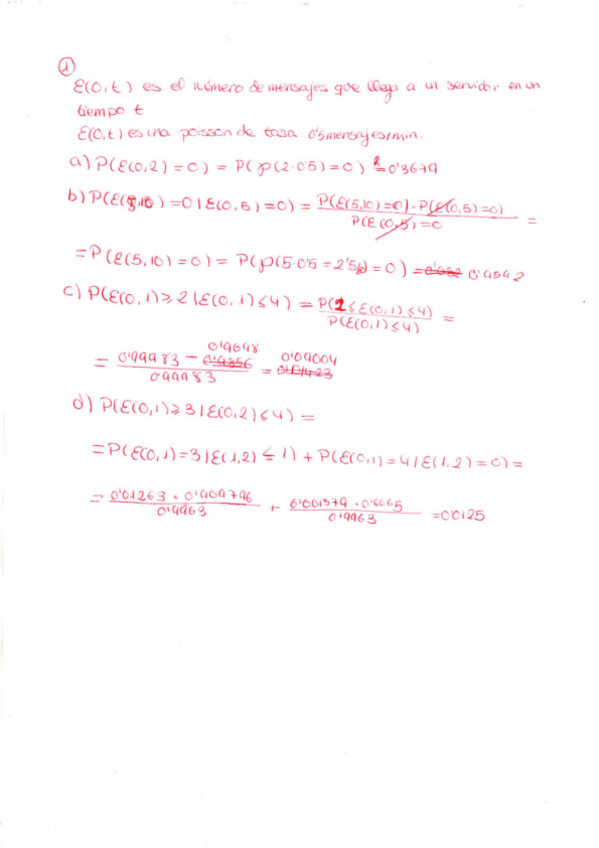 ①
ξ(0,t) es el número de mensajes que llega a un servidor en un
tiempo t
ξ(0,t) es una poisson de tasa 0'5 mensajes/min.
a) P(ξ(0,2)=0) = P(℘(2·0'5)=0) = 0'3679
b) P(ξ(5,10)=0|ξ(0,5)=0) = P(ξ(5,10)=0)·P(ξ(0,5)=0) / P(ξ(0,5)=0 =
= P(ξ(5,10)=0) = P(℘(5·0'5=2'5)=0) = 0'4592
c) P(ξ(0,1)≥2|ξ(0,1)≤4) = P(2≤ξ(0,1)≤4) / P(ξ(0,1)≤4) =
= 0'99983 - 0'9098 / 0'99983 = 0'09004
d) P(ξ(0,1)≥3|ξ(0,2)≤4) =
= P(ξ(0,1)=3|ξ(1,2)≤1) + P(ξ(0,1)=4|ξ(1,2)=0) =
= 0'01263·0'909796 / 0'9963 + 0'001579·0'6065 / 0'9963 = 0'0125